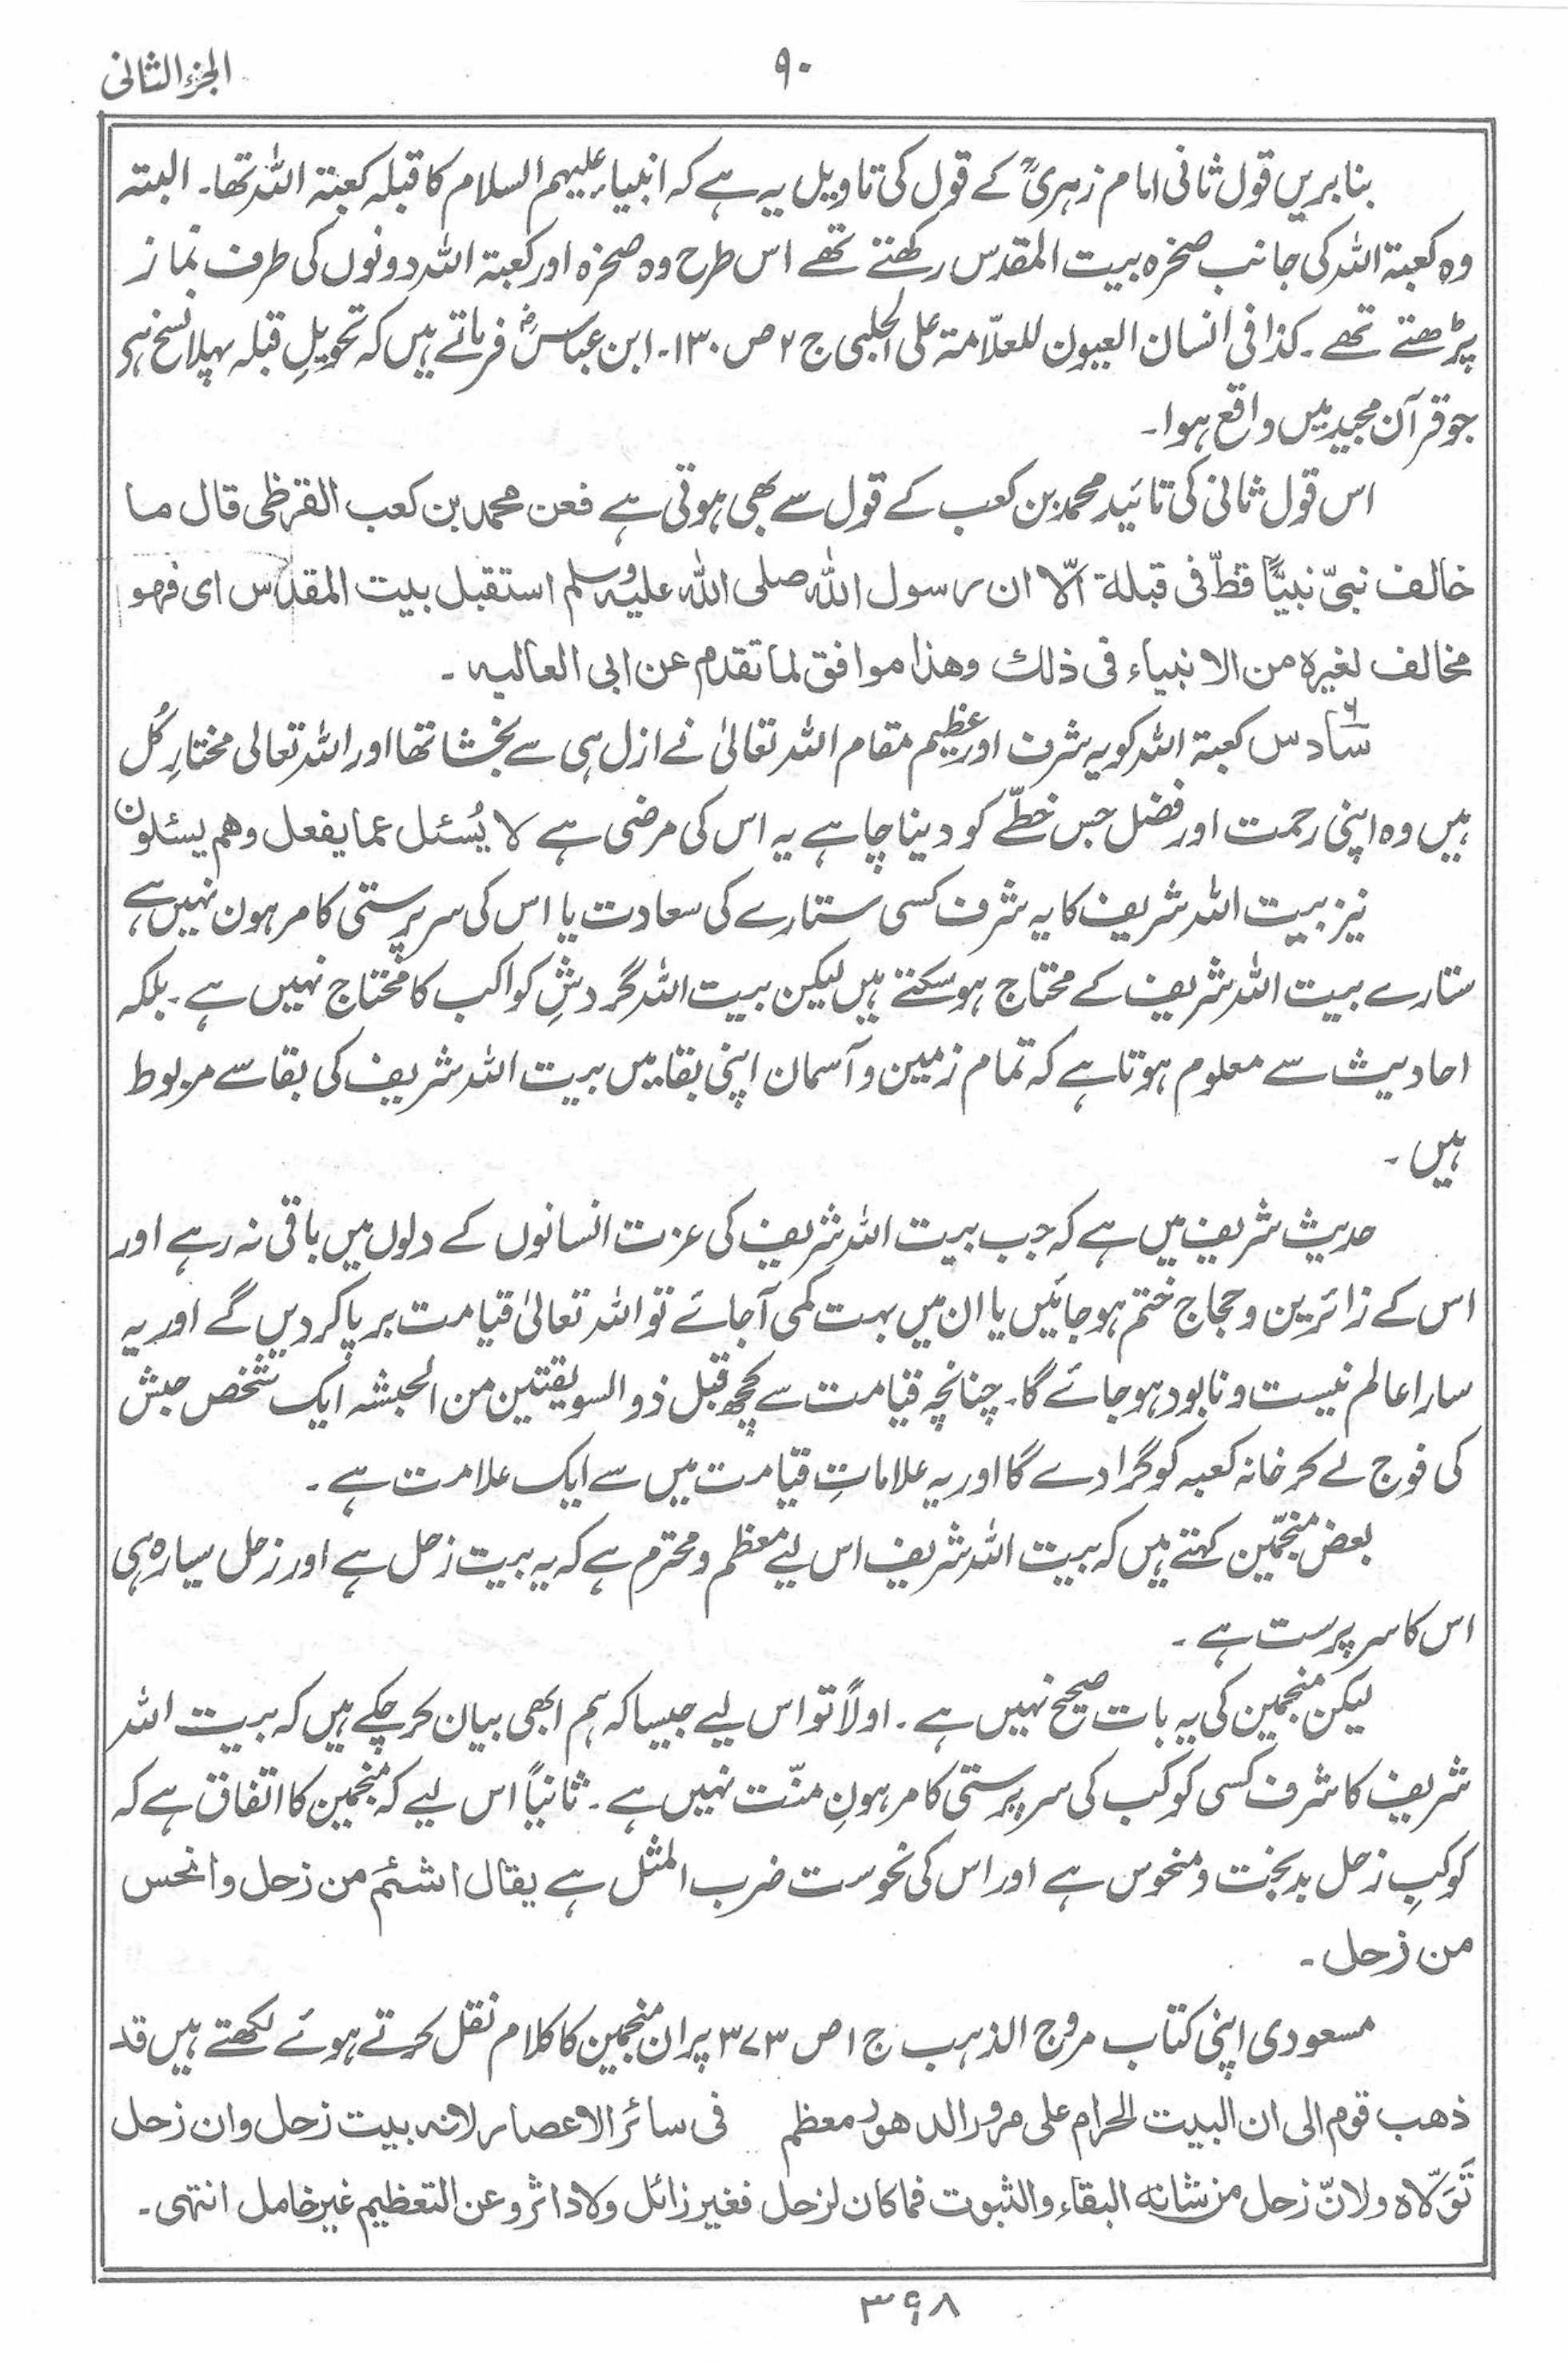 الجزء الثانی
۹۰
بنابریں قول ثانی امام زہریؒ کے قول کی تاویل یہ ہے کہ انبیاء علیہم السلام کا قبلہ کعبۃ اللہ تھا۔ البتہ
وہ کعبۃ اللہ کی جانب صخرہ بیت المقدس رکھتے تھے اس طرح وہ صخرہ اور کعبۃ اللہ دونوں کی طرف نماز
پڑھتے تھے۔ کذا فی انسان العیون للعلّامۃ علی الحلبی ج ۲ ص ۱۳۰۔ ابن عباسؓ فرماتے ہیں کہ تحویلِ قبلہ پہلا نسخ ہے
جو قرآن مجید میں واقع ہوا۔
اس قول ثانی کی تائید محمد بن کعب کے قول سے بھی ہوتی ہے فعن محمد بن کعب القرظی قال ما
خالف نبیّ نبیًّا قطّ فی قبلۃ الّا ان رسول اللہ صلی اللہ علیہ وسلم استقبل بیت المقدس ای فھو
مخالف لغیرہ من الانبیاء فی ذلک وھذا موافق لما تقدم عن ابی العالیہ۔
۶
سادس کعبۃ اللہ کو یہ شرف اور عظیم مقام اللہ تعالیٰ نے ازل ہی سے بخشا تھا اور اللہ تعالی مختارِ کُل
ہیں وہ اپنی رحمت اور فضل جس خطّے کو دینا چاہے یہ اس کی مرضی ہے لا یُسئل عما یفعل وھم یسئلون
نیز بیت اللہ شریف کا یہ شرف کسی ستارے کی سعادت یا اس کی سرپرستی کا مرہون نہیں ہے
ستارے بیت اللہ شریف کے محتاج ہو سکتے ہیں لیکن بیت اللہ گردشِ کواکب کا محتاج نہیں ہے۔ بلکہ
احادیث سے معلوم ہوتا ہے کہ تمام زمین و آسمان اپنی بقا میں بیت اللہ شریف کی بقا سے مربوط
ہیں۔
حدیث شریف میں ہے کہ جب بیت اللہ شریف کی عزت انسانوں کے دلوں میں باقی نہ رہے اور
اس کے زائرین و حجاج ختم ہو جائیں یا ان میں بہت کمی آجائے تو اللہ تعالیٰ قیامت برپا کر دیں گے اور یہ
سارا عالم نیست و نابود ہو جائے گا۔ چنانچہ قیامت سے کچھ قبل ذو السویقتین من الحبشہ ایک شخص حبش
کی فوج لے کر خانہ کعبہ کو گرا دے گا اور یہ علاماتِ قیامت میں سے ایک علامت ہے۔
بعض منجّمین کہتے ہیں کہ بیت اللہ شریف اس لیے معظم و محترم ہے کہ یہ بیت زحل ہے اور زحل سیارہ ہی
اس کا سرپرست ہے۔
لیکن منجمین کی یہ بات صحیح نہیں ہے۔ اولاً تو اس لیے جیسا کہ ہم ابھی بیان کر چکے ہیں کہ بیت اللہ
شریف کا شرف کسی کوکب کی سرپرستی کا مرہونِ منّت نہیں ہے۔ ثانیاً اس لیے کہ منجمین کا اتفاق ہے کہ
کوکبِ زحل بدبخت و منحوس ہے اور اس کی نحوست ضرب المثل ہے یقال اشئم من زحل وانحس
من زحل۔
مسعودی اپنی کتاب مروج الذہب ج ۱ ص ۳۷۳ پر ان منجمین کا کلام نقل کرتے ہوئے لکھتے ہیں قد
ذھب قوم الی ان البیت الحرام علی مرور الدھور معظم فی سائر الاعصار لانہ بیت زحل وان زحل
تَوَلّاہ ولانّ زحل من شانہ البقاء والثبوت فما کان لزحل فغیر زائل ولا داثر وعن التعظیم غیر خامل انتہی۔
۳۹۸